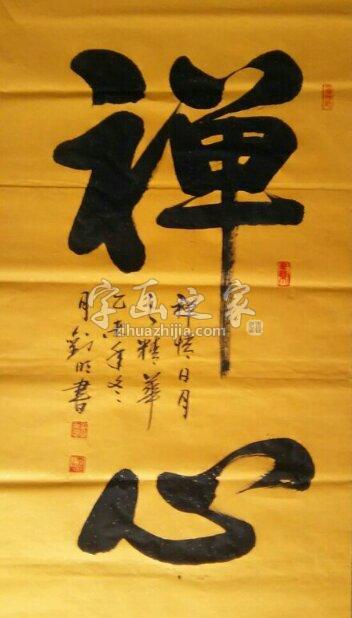 禅
心
禅日月
之精華
乙年冬
月劉明書
字画之家
zihuazhijia.com